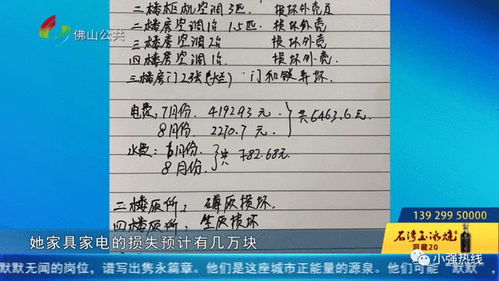 佛山公共
二楼柜机空调3匹. 损坏外壳
二楼房空调1台 1.5匹. 损坏外壳
三楼房空调2台 损坏外壳
四楼房空调1台, 损坏外壳
三楼房门2张(烂) 门和锁弄坏.
电费, 7月份. 4192.93元 共6463.6元
8月份. 2270.7元
水费: 月份. 共782.68元
8月份.
二楼厕所, 损坏
四楼厕所; 坐厕损坏
139 299 50000
石湾玉冰烧
洞藏20
她家具家电的损失预计有几万块
默默无闻的岗位，谱写出隽永篇章。他们是这座城市正能量的源泉。他们可能“默默
小强热线